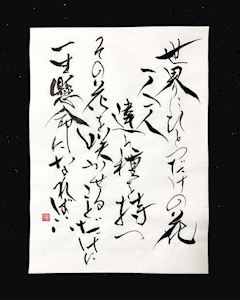 世界にひとつだけの花
一人一人
違う種を持つ
その花を咲かせることだけに
一生懸命になればいい